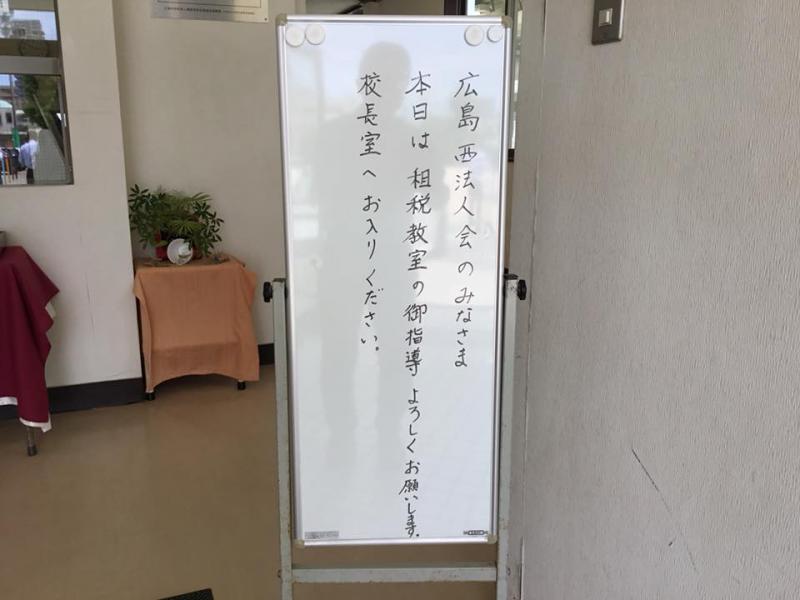 広島西法人会のみなさま
本日は 租税教室の御指導 よろしくお願いします.
校長室へ お入りください。